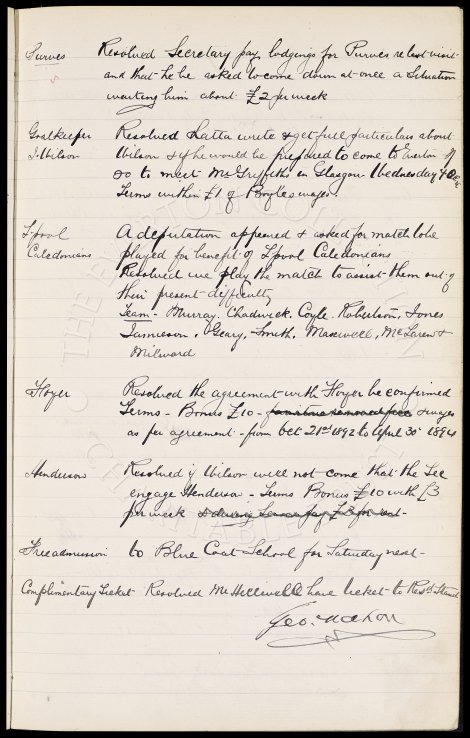 Purves Resolved Secretary pay lodgings for Purves re last visit
and that he be asked to come down at once a situation
waiting him about £2 per week
Goalkeeper Resolved Latta write & get full particulars about
J. Wilson Wilson & if he would be prepared to come to Everton if
so to meet Mr Griffiths in Glasgow Wednesday
Terms within £1 of Boyle's wages.
L'pool A deputation appeared & asked for match to be
Caledonians played for benefit of L'pool Caledonians
Resolved we play the match to assist them out of
their present difficulty
Team - Murray. Chadwick. Coyle. Robertson, Jones
Jamieson, Geary, Smith, Maxwell, McLaren &
Milward
Hoyer Resolved the agreement with Hoyer be confirmed
Terms - Bonus £10 - & wages
as per agreement - from Oct 21st 1892 to April 30 1894
Henderson Resolved if Wilson will not come that the Sec
engage Henderson - Terms Bonus £10 with £3
per week
Free admission to Blue Coat School for Saturday next -
Complimentary Ticket Resolved Mr Helliwell have ticket to Resvd Stand
Geo. Mahon